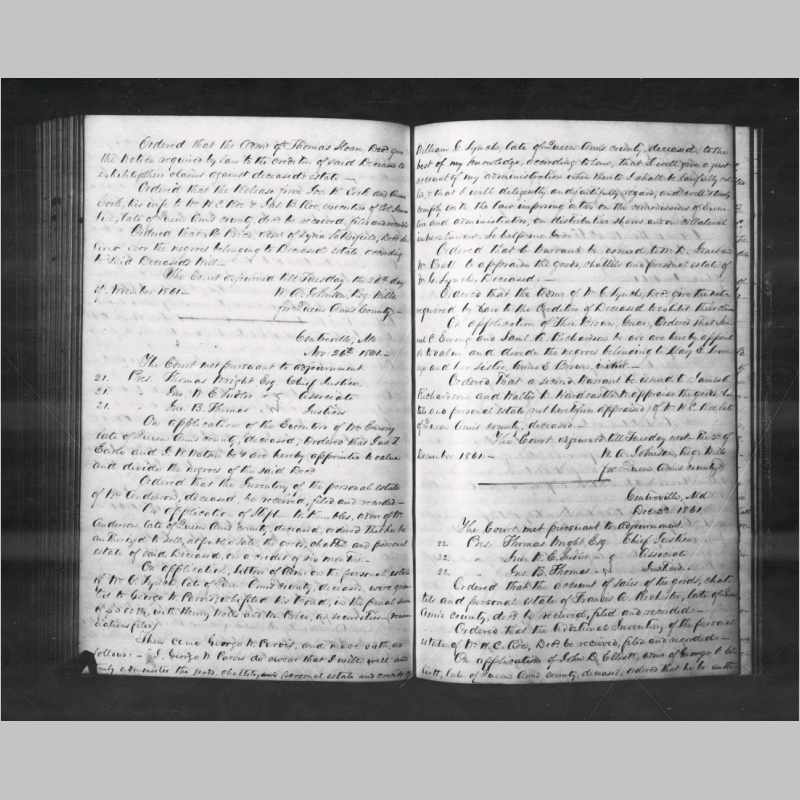 Ordered that the Admr of Thomas Sloan, Decd give
the Notice required by law to the creditors of said Deceased to
exhibit their claims against deceased's estate —
Ordered that the Release from Jas. W. and
wife to Wm W. C. Roe & Jas. B. Roe, executors of
late of Queen Anns county, decd be received, filed and recorded
Ordered that B. Admr of Decd de-
liver over the negroes belonging to Deceased's estate according
to said Deceased's Will —
The Court adjourned till Tuesday the 26th day
of November 1861 — W. A. Johnson, Reg. Wills
for Queen Anns County —
Centreville, Md
Nov. 26th 1861 —
The Court met pursuant to adjournment
21. Pres. Thomas Wright Esq Chief Justice
21. " Jno. W. E. Sudler & Associate
21. " Jno. B. Thomas Justices
On application of the Executors of Wm
late of Queen Anns county, deceased, Ordered that Jas. T.
Earle and J. W. be & are hereby appointed to value
and divide the negroes of the said Decd
Ordered that the Inventory of the personal estate
of Wm Anderson, deceased, be received, filed and recorded —
On application of admr of Wm
Anderson late of Queen Anns county, deceased, ordered that he be
authorized to sell, at public sale, the goods, chattels and personal
estate of said Deceased, on a credit of six months —
On application, letters of Admn on the personal estate
of Wm C. Lynch late of Queen Anns county, deceased, were gran-
ted to George W. Parvis, who filed his bond, in the penal sum
of with Henry and Wm Price, as securities, &
Then came George W. Parvis, and made oath, as
follows: — I George W. Parvis do swear that I will well and
truly administer the goods, chattels, and personal estate and credits of
William C. Lynch, late of Queen Anns county, deceased, to the
best of my knowledge, according to law, that I will give a just
account of my administration when thereto I shall be lawfully cal-
led, & that I will diligently and faithfully regard, and well & truly
comply with the law imposing a tax on the commissions of Execu-
tors and administrators, on distributive shares and on collateral
inheritances. So help me God —
Ordered that a Warrant be issued to
to appraise the goods, chattels and personal estate of
W. C. Lynch, Deceased. —
Ordered that the Admr of W. C. Lynch, Decd give the notice
required by Law to the Creditors of Deceased to exhibit their claims
On application of Brown, Guar, Ordered that Sam-
uel C. and Saml. T. Richardson be & are hereby appoint-
ed to value and divide the negroes belonging to Mary E. Brown
and her Sister, Annie E. Brown,
Ordered that a second warrant be issued to James
Richardson and Walter T. Hardcastle to appraise the goods, chat-
tels and personal estate not heretofore appraised, of W. W. C. Roe, late
of Queen Anns county, deceased —
The Court adjourned till Tuesday next the 3d of
December 1861 — W. A. Johnson, Reg. Wills
for Queen Anns County
Centreville, Md
Dec. 3d 1861.
The Court met pursuant to adjournment
22. Pres. Thomas Wright Esq Chief Justice
22. " Jno. W. E. Sudler & Associate
22. " Jno. B. Thomas Justices
Ordered that the account of sales of the goods, chat-
tels and personal estate of Francis A. late of Queen
Anns county, decd be received, filed and recorded —
Ordered that the additional Inventory of the personal
estate of W. W. C. Roe, Decd be received, filed and recorded —
On application of John B. Elliott, admr of George T. Elli-
ott, late of Queen Anns county, deceased, ordered that he be auth-